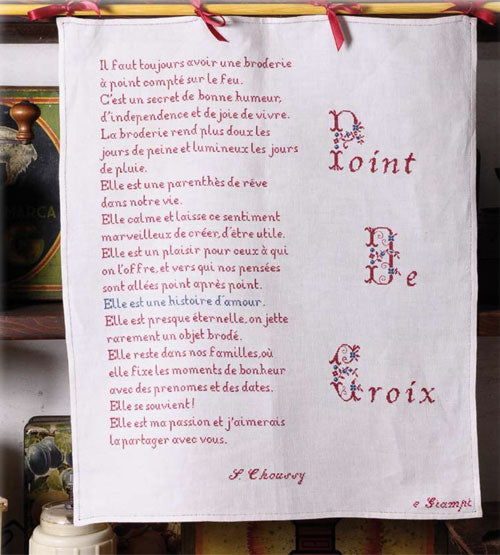 Il faut toujours avoir une broderie
à point compté sur le feu.
C'est un secret de bonne humeur,
d'independence et de joie de vivre.
La broderie rend plus doux les
jours de peine et lumineux les jours
de pluie.
Elle est une parenthès de rêve
dans notre vie.
Elle calme et laisse ce sentiment
marveilleux de créer, d'être utile.
Elle est un plaisir pour ceux à qui
on l'offre, et vers qui nos pensées
sont allées point après point.
Elle est une histoire d'amour.
Elle est presque éternelle, on jette
rarement un objet brodé.
Elle reste dans nos familles, où
elle fixe les moments de bonheur
avec des prenomes et des dates.
Elle se souvient!
Elle est ma passion et j'aimerais
la partager avec vous.
S. Choussy
Point
De
Croix
e Grampt
MARCA